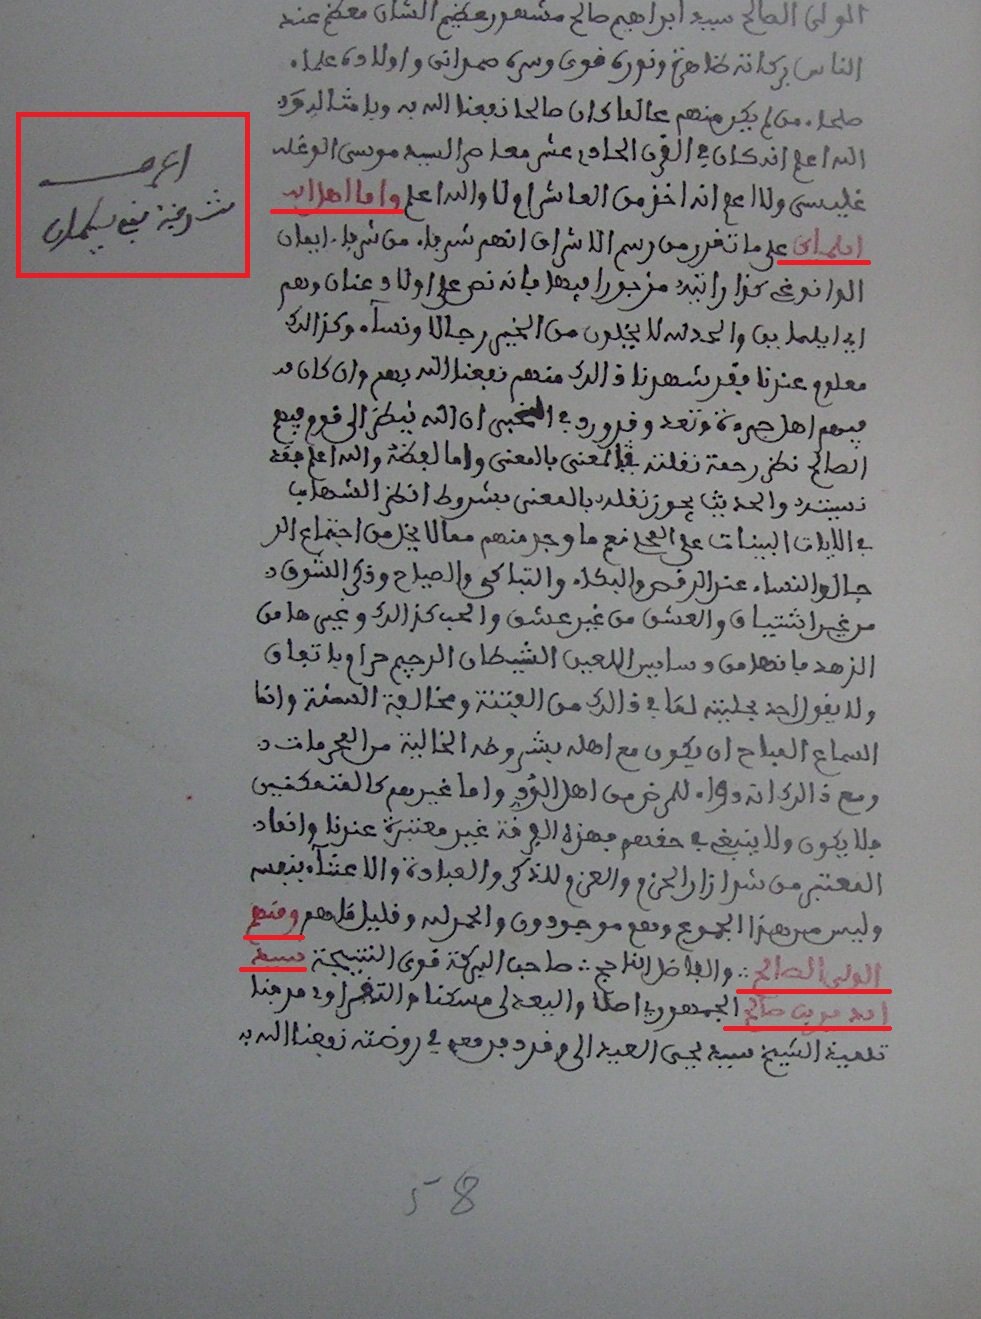 الولي الصالح سيد ابراهيم صالح مشهور عظيم الشان معظم عند
الناس بركاته ظاهرة ونوره قوي وسره صمداني واولاده علماء
صلحاء من لم يكن منهم عالما كان صالحا نفعنا الله به وبامثاله وقد
الله اعلم انه كان في القرن الحادي عشر معاصر السيد موسى الوغلـ
غليسي ولا اعلم انه اخذ من العاشر ام لا والله اعلم واما اهل
على ما تقرر من رسم الاشراف انهم شرفاء من شرفاء
والحمد لله لا يخلون من الخير رجالا ونساء وكذالك
معلوم عندنا فقد شهرنا ذالك منهم نفعنا الله بهم وان كان قد
فيهم اهل وتعد وقد ورد في الخبر ان الله ينظر الى قوم فيهم
الصالح نظر رحمة نقلته بالمعنى واما لفظه والله اعلم فقد
نسيته والحديث يجوز نقله بالمعنى بشروط انظر الشهاب
في الايات البينات على نعم ما وجد منهم مما لا يخل من اجتماع الر
جال والنساء عند الرقص والبكاء والتباكي والصياح وذكر الشوق
من غير اشتياق والعشق من غير عشق والحب كذالك وغيرها من
الزهد فانها من دسايس اللعين الشيطان الرجيم حرام باتفاق
ولا يقول احد بحليته لما في ذالك من الفتنة ومخالفة السنة وانما
السماع المباح ان يكون مع اهله بشروطه الخالية من المحرمات
ومع ذالك انه دواء للمرض من اهل واما غيرهم كالمتمكنين
فلا يكون ولا ينبغي في حقهم فهذه الفرقة غير معتبرة عندنا وانما
المعتبر من شد ازار الحزم والعزم للذكر والعبادة والاعتناء بنفسه
وليس من هذا الجموع وهم موجودون والحمد لله وقليل ما هم ومنهم
الولي الصالح والفاضل الناجح صاحب البركة قوي النتيجة سيد
صالح الجمهوري اصلا واليعلى مسكنا
تلميذ الشيخ سيد يحيى العيدلي وقد في روضته نفعنا الله به
58